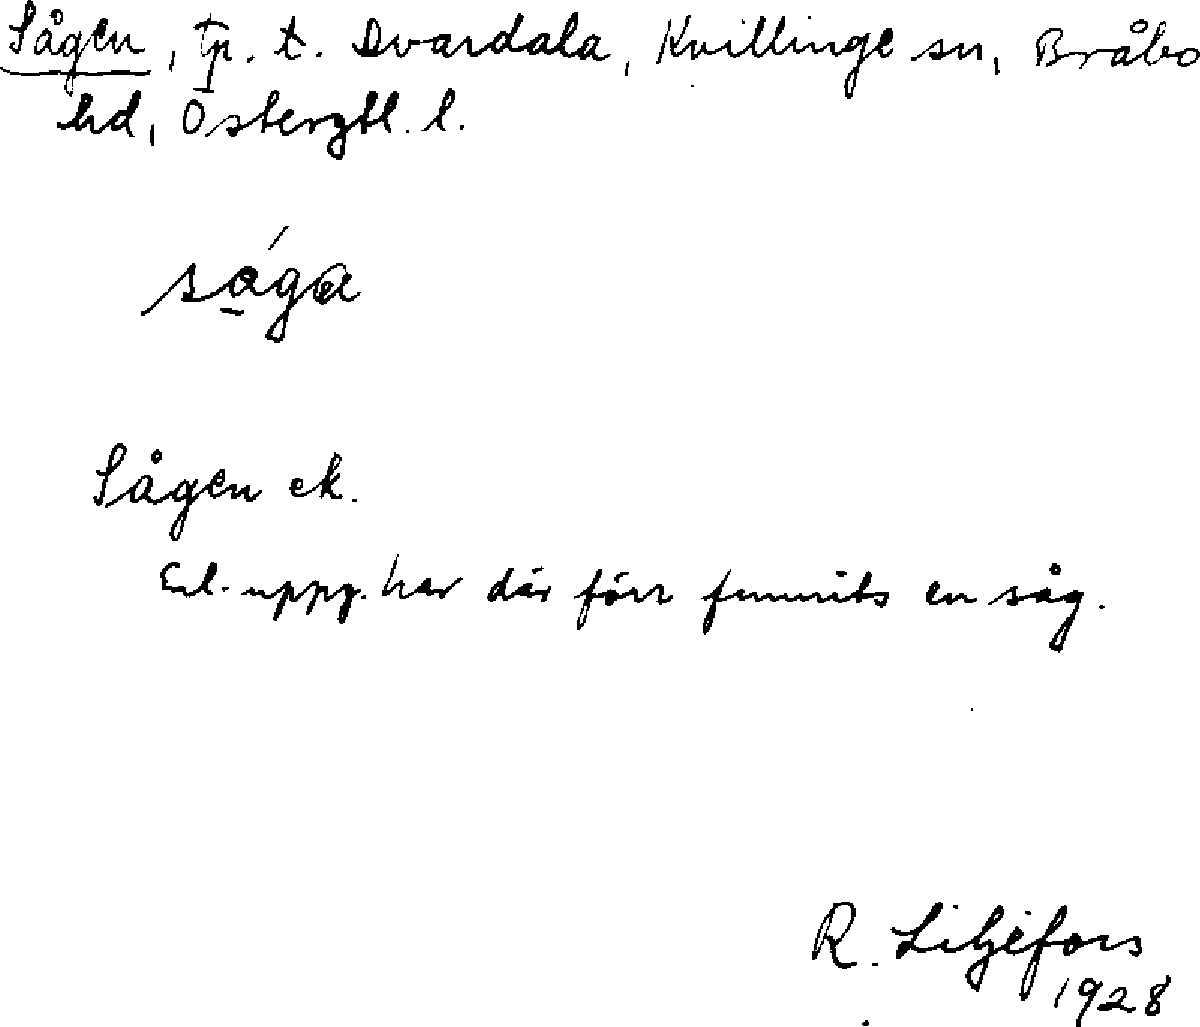 Sågen, tp. t. Dvardala, Kvillinge sn, Bråbo
hd, Östergtl. l.
sågen ek.
Enl. uppg. har där förr funnits en såg.
R. Liljefors
1928